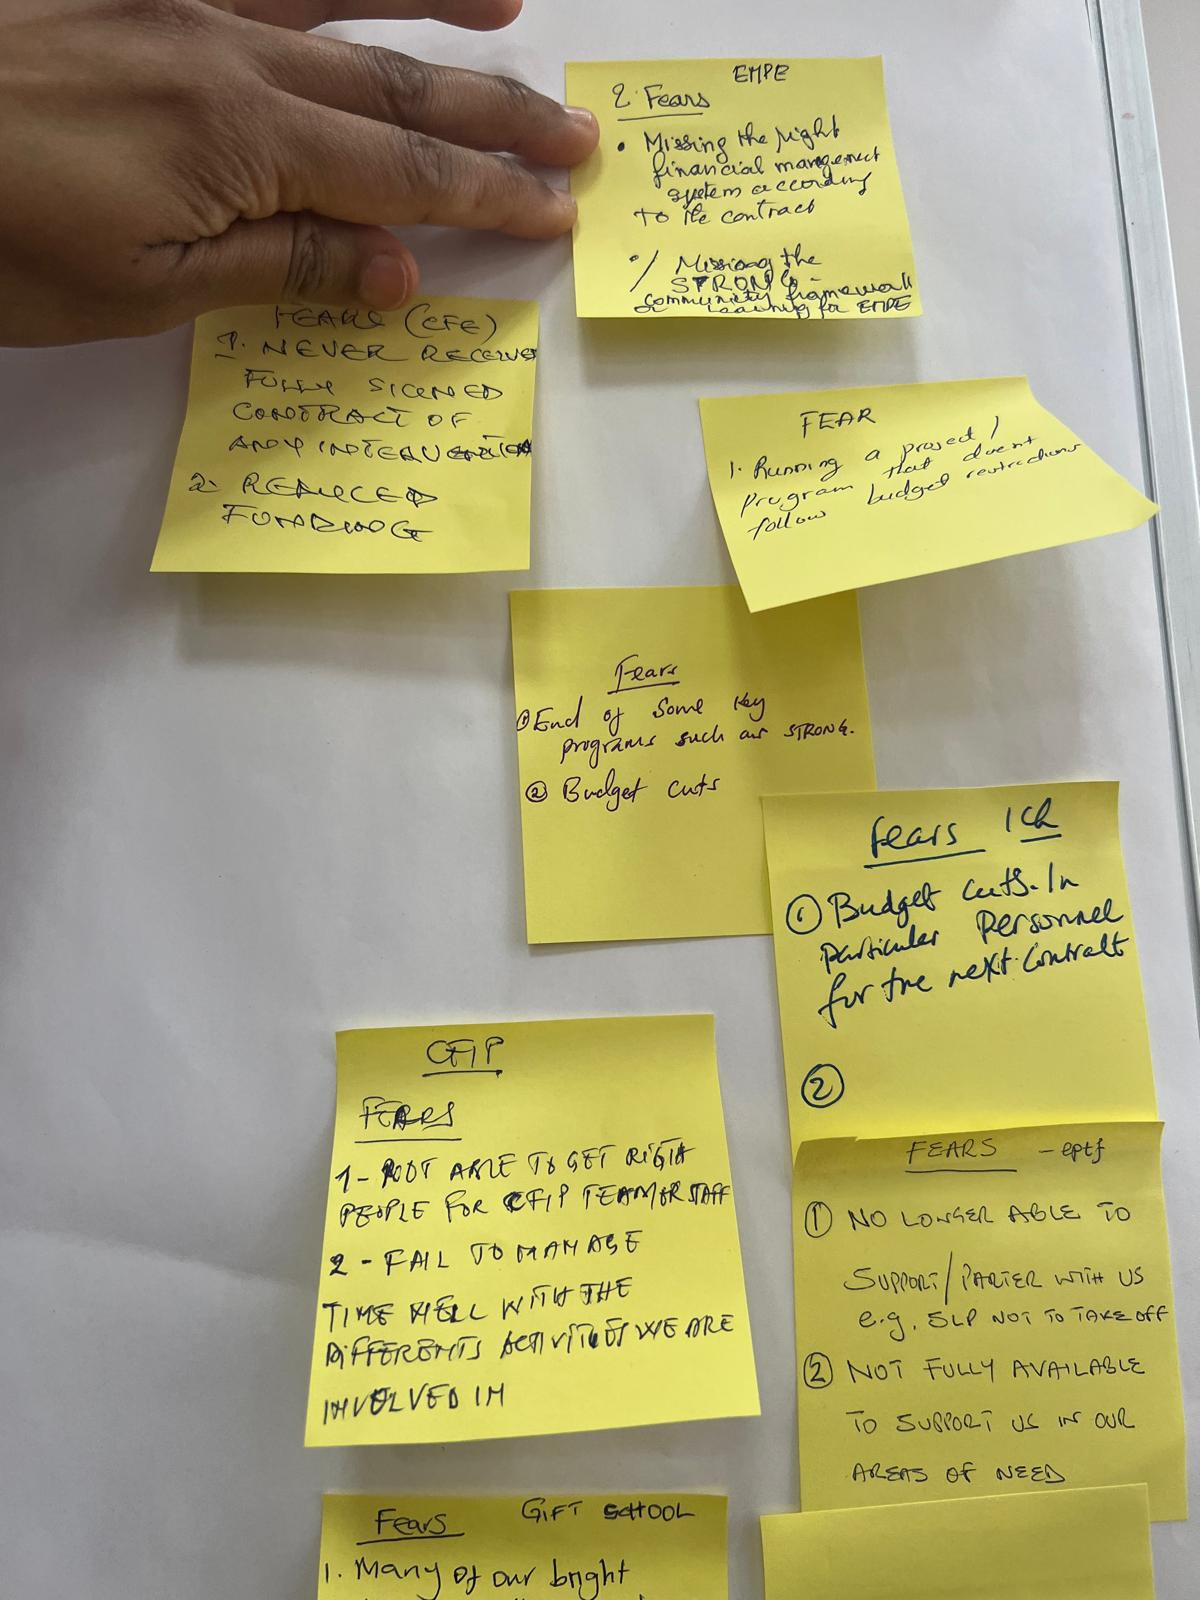 EMPE
2 Fears
• Missing the right
financial management
system according
to the contract
•/ Missiong the
STRONG
community framework
learning for EMPE
FEARS (CFE)
1. NEVER RECEIVE
FULLY SIGNED
CONTRACT OF
ANY INTERVENTION
2. REDUCED
FUNDING
FEAR
1. Running a project/
program that doesnt
follow budget restrictions
Fears
① End of some key
programs such as STRONG.
② Budget cuts
Fears ICR
① Budget cuts. In
particular Personnel
for the next contract
②
CFIP
FEARS
1- NOT ABLE TO GET RIGTH
PEOPLE FOR CFIP TEAM OR STAFF
2- FAIL TO MANAGE
TIME WELL WITH THE
DIFFERENTS ACTIVITIES WE ARE
INVOLVED IN
FEARS - eptf
① NO LONGER ABLE TO
SUPPORT/PARTER WITH US
e.g. SLP NOT TO TAKE OFF
② NOT FULLY AVAILABLE
TO SUPPORT US IN OUR
AREAS OF NEED
Fears GIFT SCHOOL
1. Many of our bright